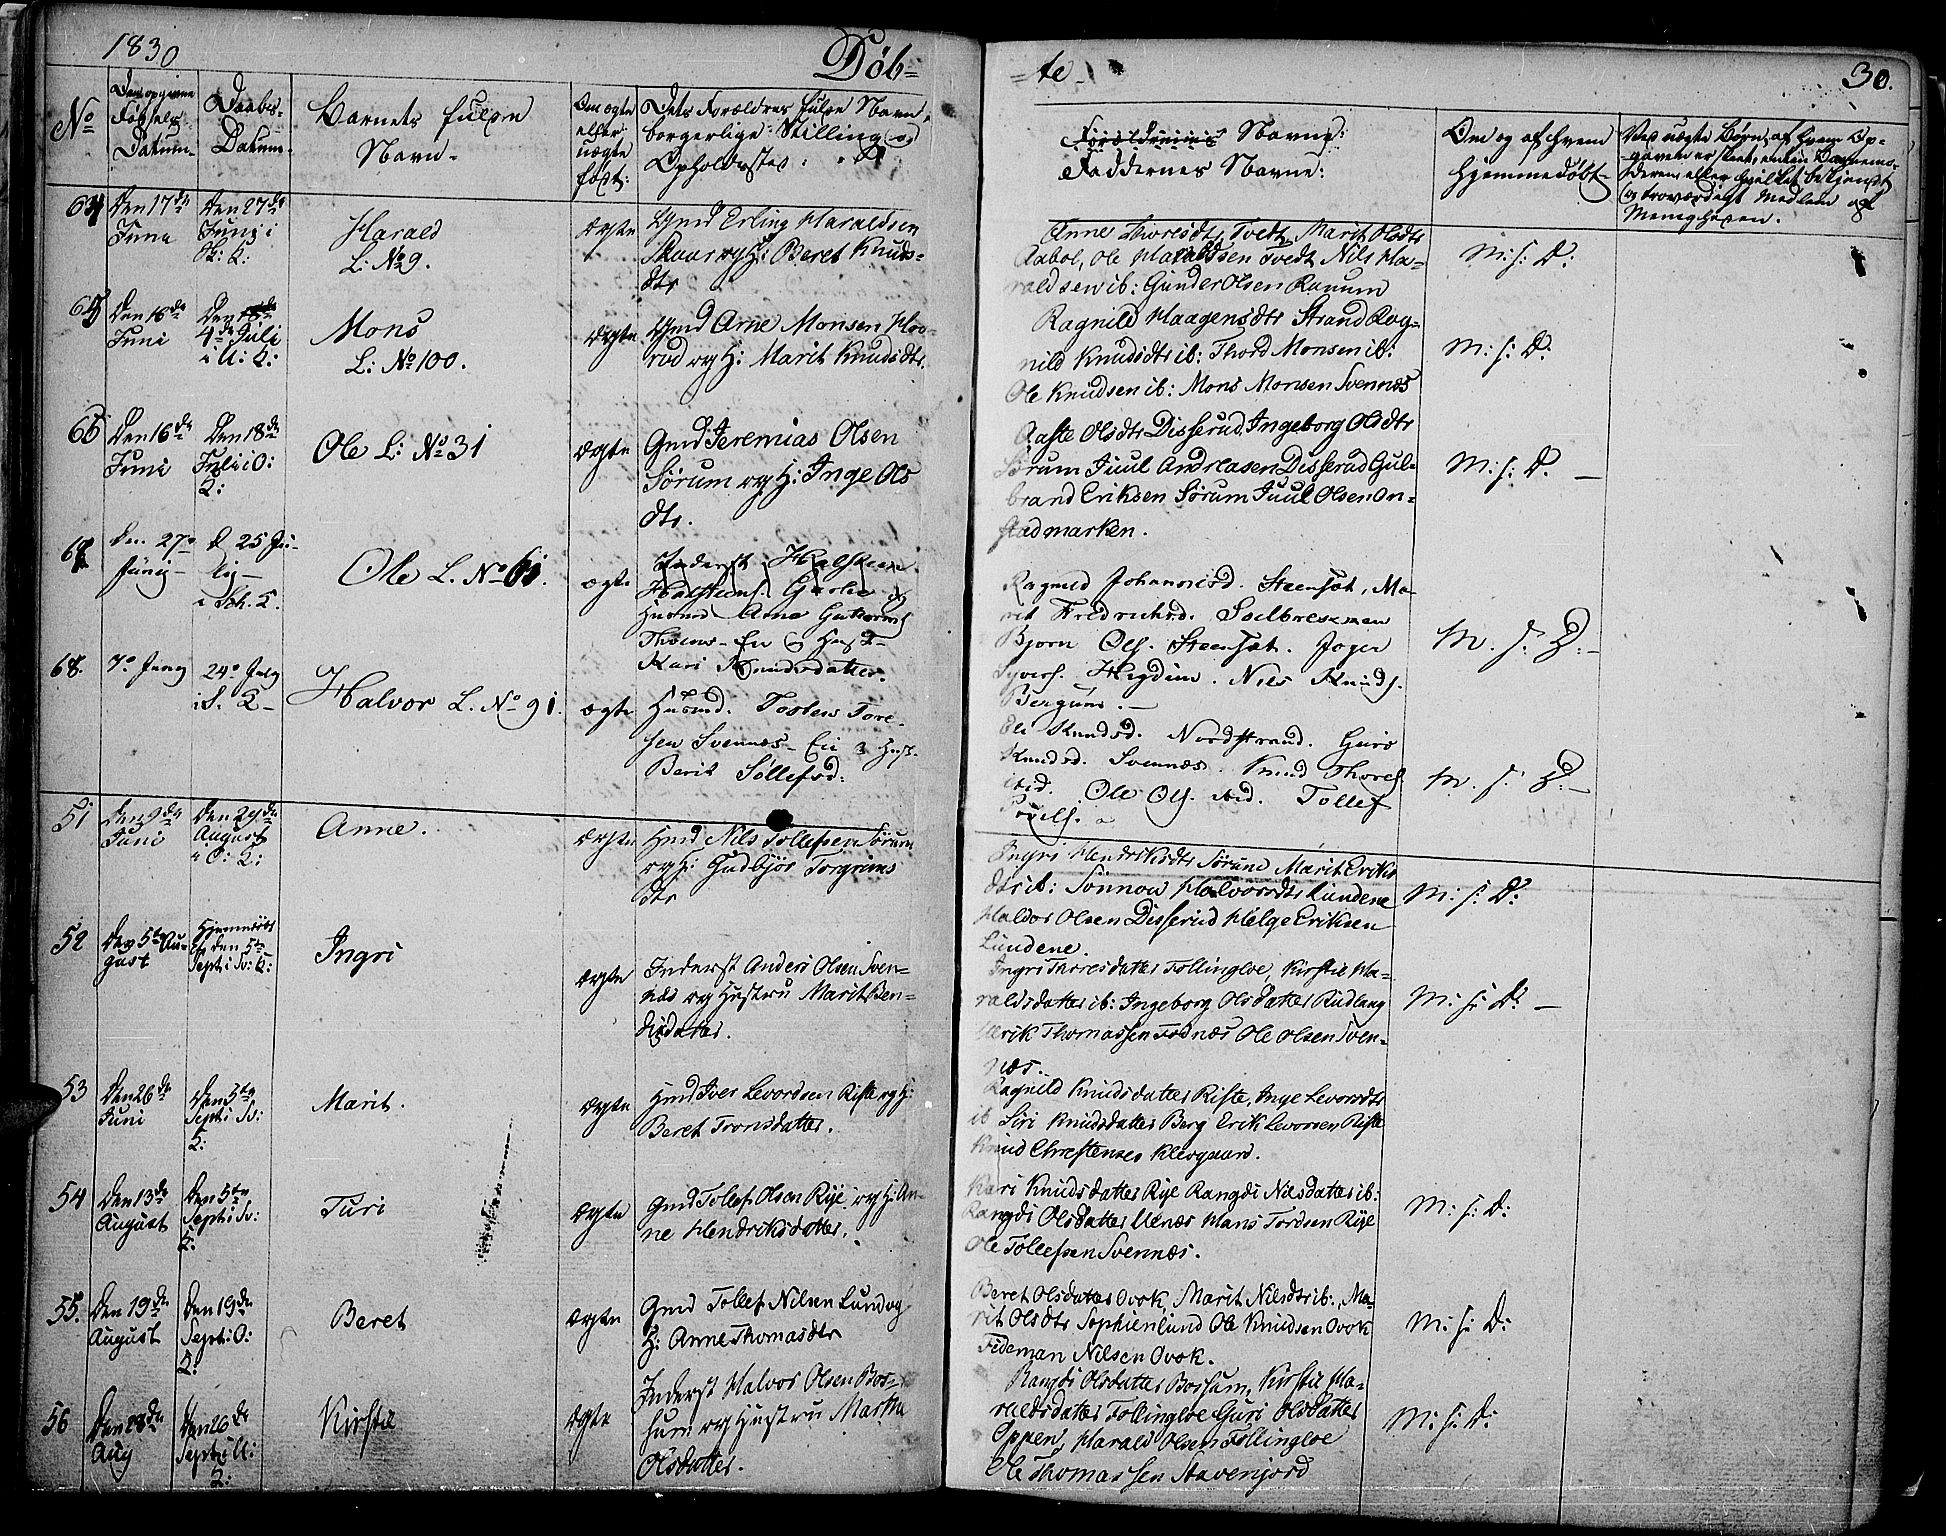 1830
Døb=
=te
30.
No
Den opgivne Fødsels Datum
Daabs-Datum
Barnets fulde Navn
Om ægte eller uægte født:
Dets Forældres fulde Navn, borgerlige Stilling og Opholdssted:
Faddernes Navne:
Om og af hvem hjemmedøbt
Ved uægte Børn, af hvem Opgaven er skeet, enten Barnemoderen, eller hvilket bekjendt og troværdigt Medlem af Menigheden.
64
Den 17de
Juni
Den 27de
Juni i
Harald
L: No 9.
ægte
Gmd Erling Haraldsen
Skaar og H: Beret Knuds=
dtr
Anne Thoresdtr Tvedt, Marit Olsdtr
Aabol, Ole Haraldsen Tvedt Nils Ha=
raldsen ib: Gunder Olsen Ranum
M: f: D:
65
Den 16de
Juni
4de Juli
i U: K:
Mons
L: No 100.
ægte
Gmd Arne Monsen Hov=
rud og H: Marit Knudsdtr.
Ragnild Haagensdtr Strand Rag=
nild Knudsdtr ib: Thord Monsen ib:
Ole Knudsen ib: Mons Monsen Svennæs
M: f: D:
66
Den 16de
Juni
Den 18de
Juli i O:
K:
Ole L: No 31
ægte
Gmd Jeremias Olsen
Sørum og H: Inge Ols
dtr.
Aaste Olsdtr Disserud, Ingeborg Olsdtr
Sørum Juul Andreasen Disserud Gul=
brand Eriksen Sørum Juul Olsen On=
stadmarken.
M: f: D. —
67
Den 27de
Junij
d 25 Ju-
lij
i Sk. K.
Ole L. No 61.
ægte
Inderst Halsten
Kari Knudsdatter.
Ragnild Johannesd. Steensæt, Ma-
rit Fredriksd.
Bjørn Ols. Steensæt.
Nils Knuds.
Bergum. —
M. f. D. —
68.
7de Juny
24de July
i S. K
Halvor L. No 91.
ægte
Husmd. Tosten Tore-
sen Svennes
Berit Tollefsd:
Eli Knudsd. Nordstrand. Guri
Knudsd. Svennæs. Knud Thores.
ibid. Ole Ols. ibid. Tollef
M. f. D. —
51
Den 9de
Juni
Den 29de
August
i O: K:
Anne.
ægte
Hmd Nils Tollefsen Sørum
og H: Gudbjør Torgrims
dtr
Ingri Hendriksdtr Sørum Marit Eriks
dtr ib: Sønnou Halvorsdtr Lundene
Haldor Olsen Disserud Helge Eriksen
Lundene.
M: f: D:
52
Den 5te Au=
gust
Den 5te
Sept i Sv: K:
Ingri
ægte
Inderst Anders Olsen Sven=
næs og Hustru Marit Ben=
diksdatter.
Ingri Thoresdatter Follingloe, Kirstie Ha=
raldsdatter ib: Ingeborg Olsdatter Rudlang
Erik Thomassen Fodnæs Ole Olsen Sven=
næs.
M: f: D. —
53
Den 26de
Juni
Den 5te
Sept i Sv:
K:
Marit.
ægte
Hmd Iver Levordsen Riste og H:
Beret Tronsdatter.
Ragnild Knudsdatter Riste, Inge Levorsdtr
ib Siri Knudsdatter Berg Erik Levorsen Riste
Knud Christensen Klevgaard.
54
Den 13de
August
Den 5te
Sept i Sv:
K:
Turi
ægte
Gmd Tollef Olsen Rye og H: An=
ne Hendriksdatter.
Kari Knudsdatter Rye Rangdi Nilsdatter ib:
Rangdi Olsdatter Ulnæs Hans Tordsen Rye
Ole Tollefsen Svennæs.
M: f: D:
55.
Den 19de
August
Den 19de
Sept: O:
K:
Beret
ægte
Gmd Tollef Nilsen Lund og
H: Anne Thomasdtr
Beret Olsdatter Ovok, Marit Nilsdtr ib:, Ma=
rit Olsdtr Sophienlund Ole Knudsen Ovok
Tideman Nilsen Ovok.
M: f: D:
56
Den 28de
Aug
Den 26de
Sept i U:
K:
Kirstie
ægte
Inderst Halvor Olsen Bos=
hum og Hustru Martha
Olsdatter.
Rangdi Olsdatter Boshum, Kirstie Ha=
raldsdatter Follingloe Guri Olsdatter
Oppen, Harald Olsen Follingloe
Ole Thomassen Stavenjord
M: f: D: